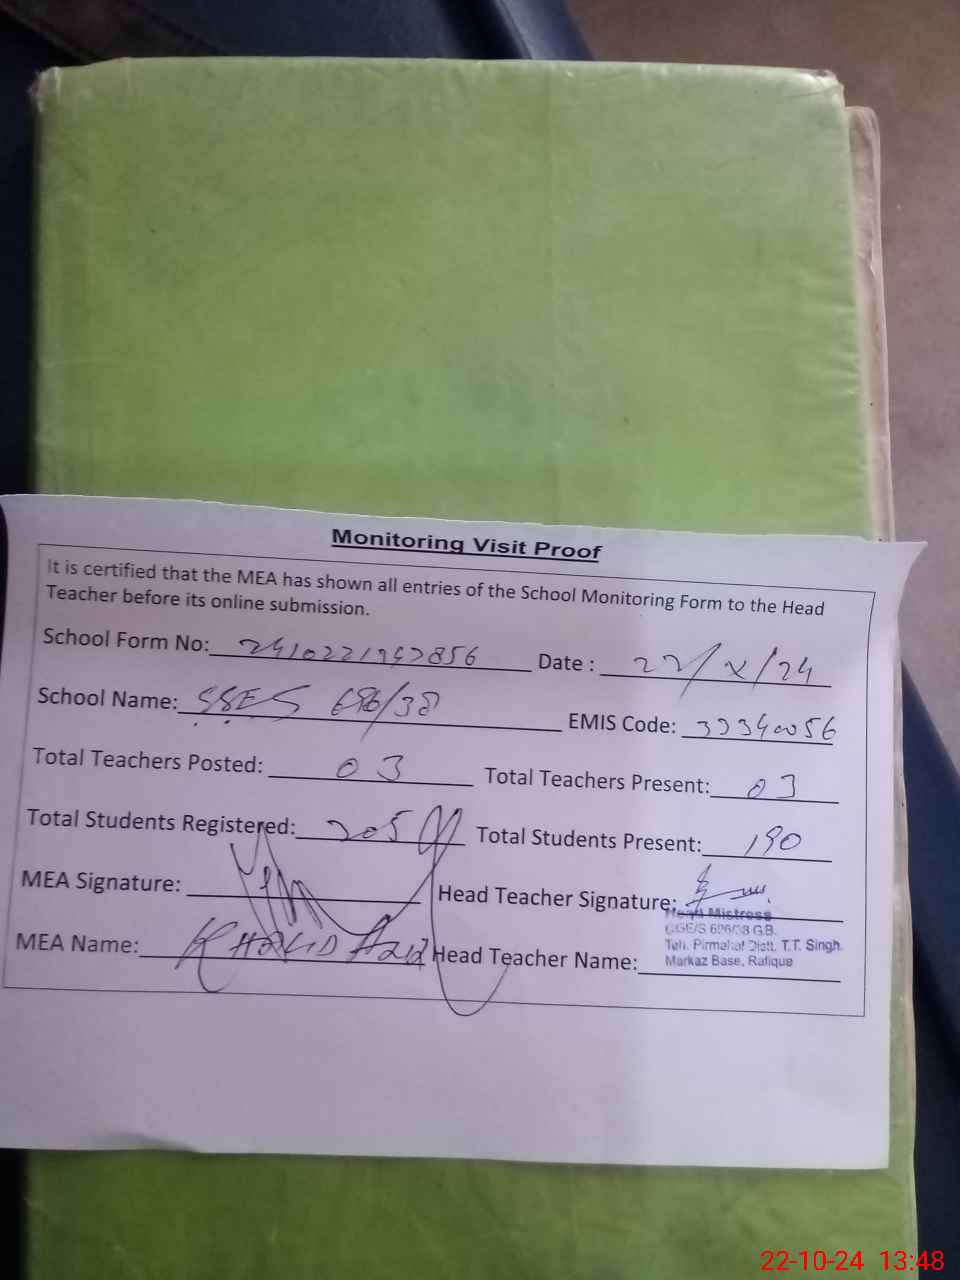 Monitoring Visit Proof
It is certified that the MEA has shown all entries of the School Monitoring Form to the Head
Teacher before its online submission.
School Form No: Date : 22/X/24
School Name: 696/38 EMIS Code: 33340056
Total Teachers Posted: 03 Total Teachers Present: 03
Total Students Registered: 205 Total Students Present: 190
MEA Signature: Head Teacher Signature:
Head Mistress
696/38 G.B.
Teh. Pirmahal Distt. T.T. Singh.
Markaz Base, Rafique
MEA Name: KHALID Head Teacher Name:
22-10-24 13:48